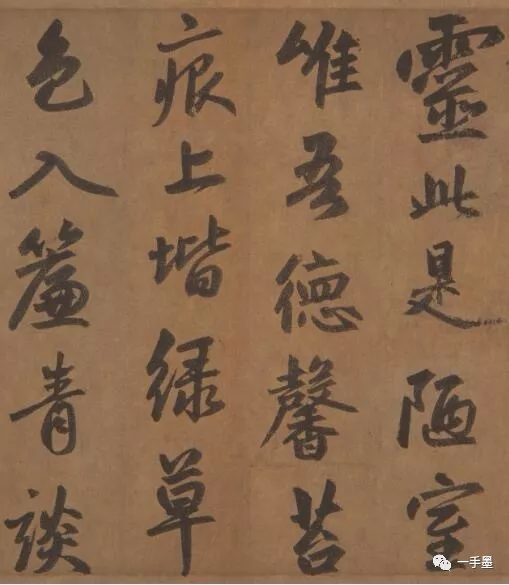 靈此是陋室
唯吾德馨苔
痕上堦绿草
色入簾青談
一手墨